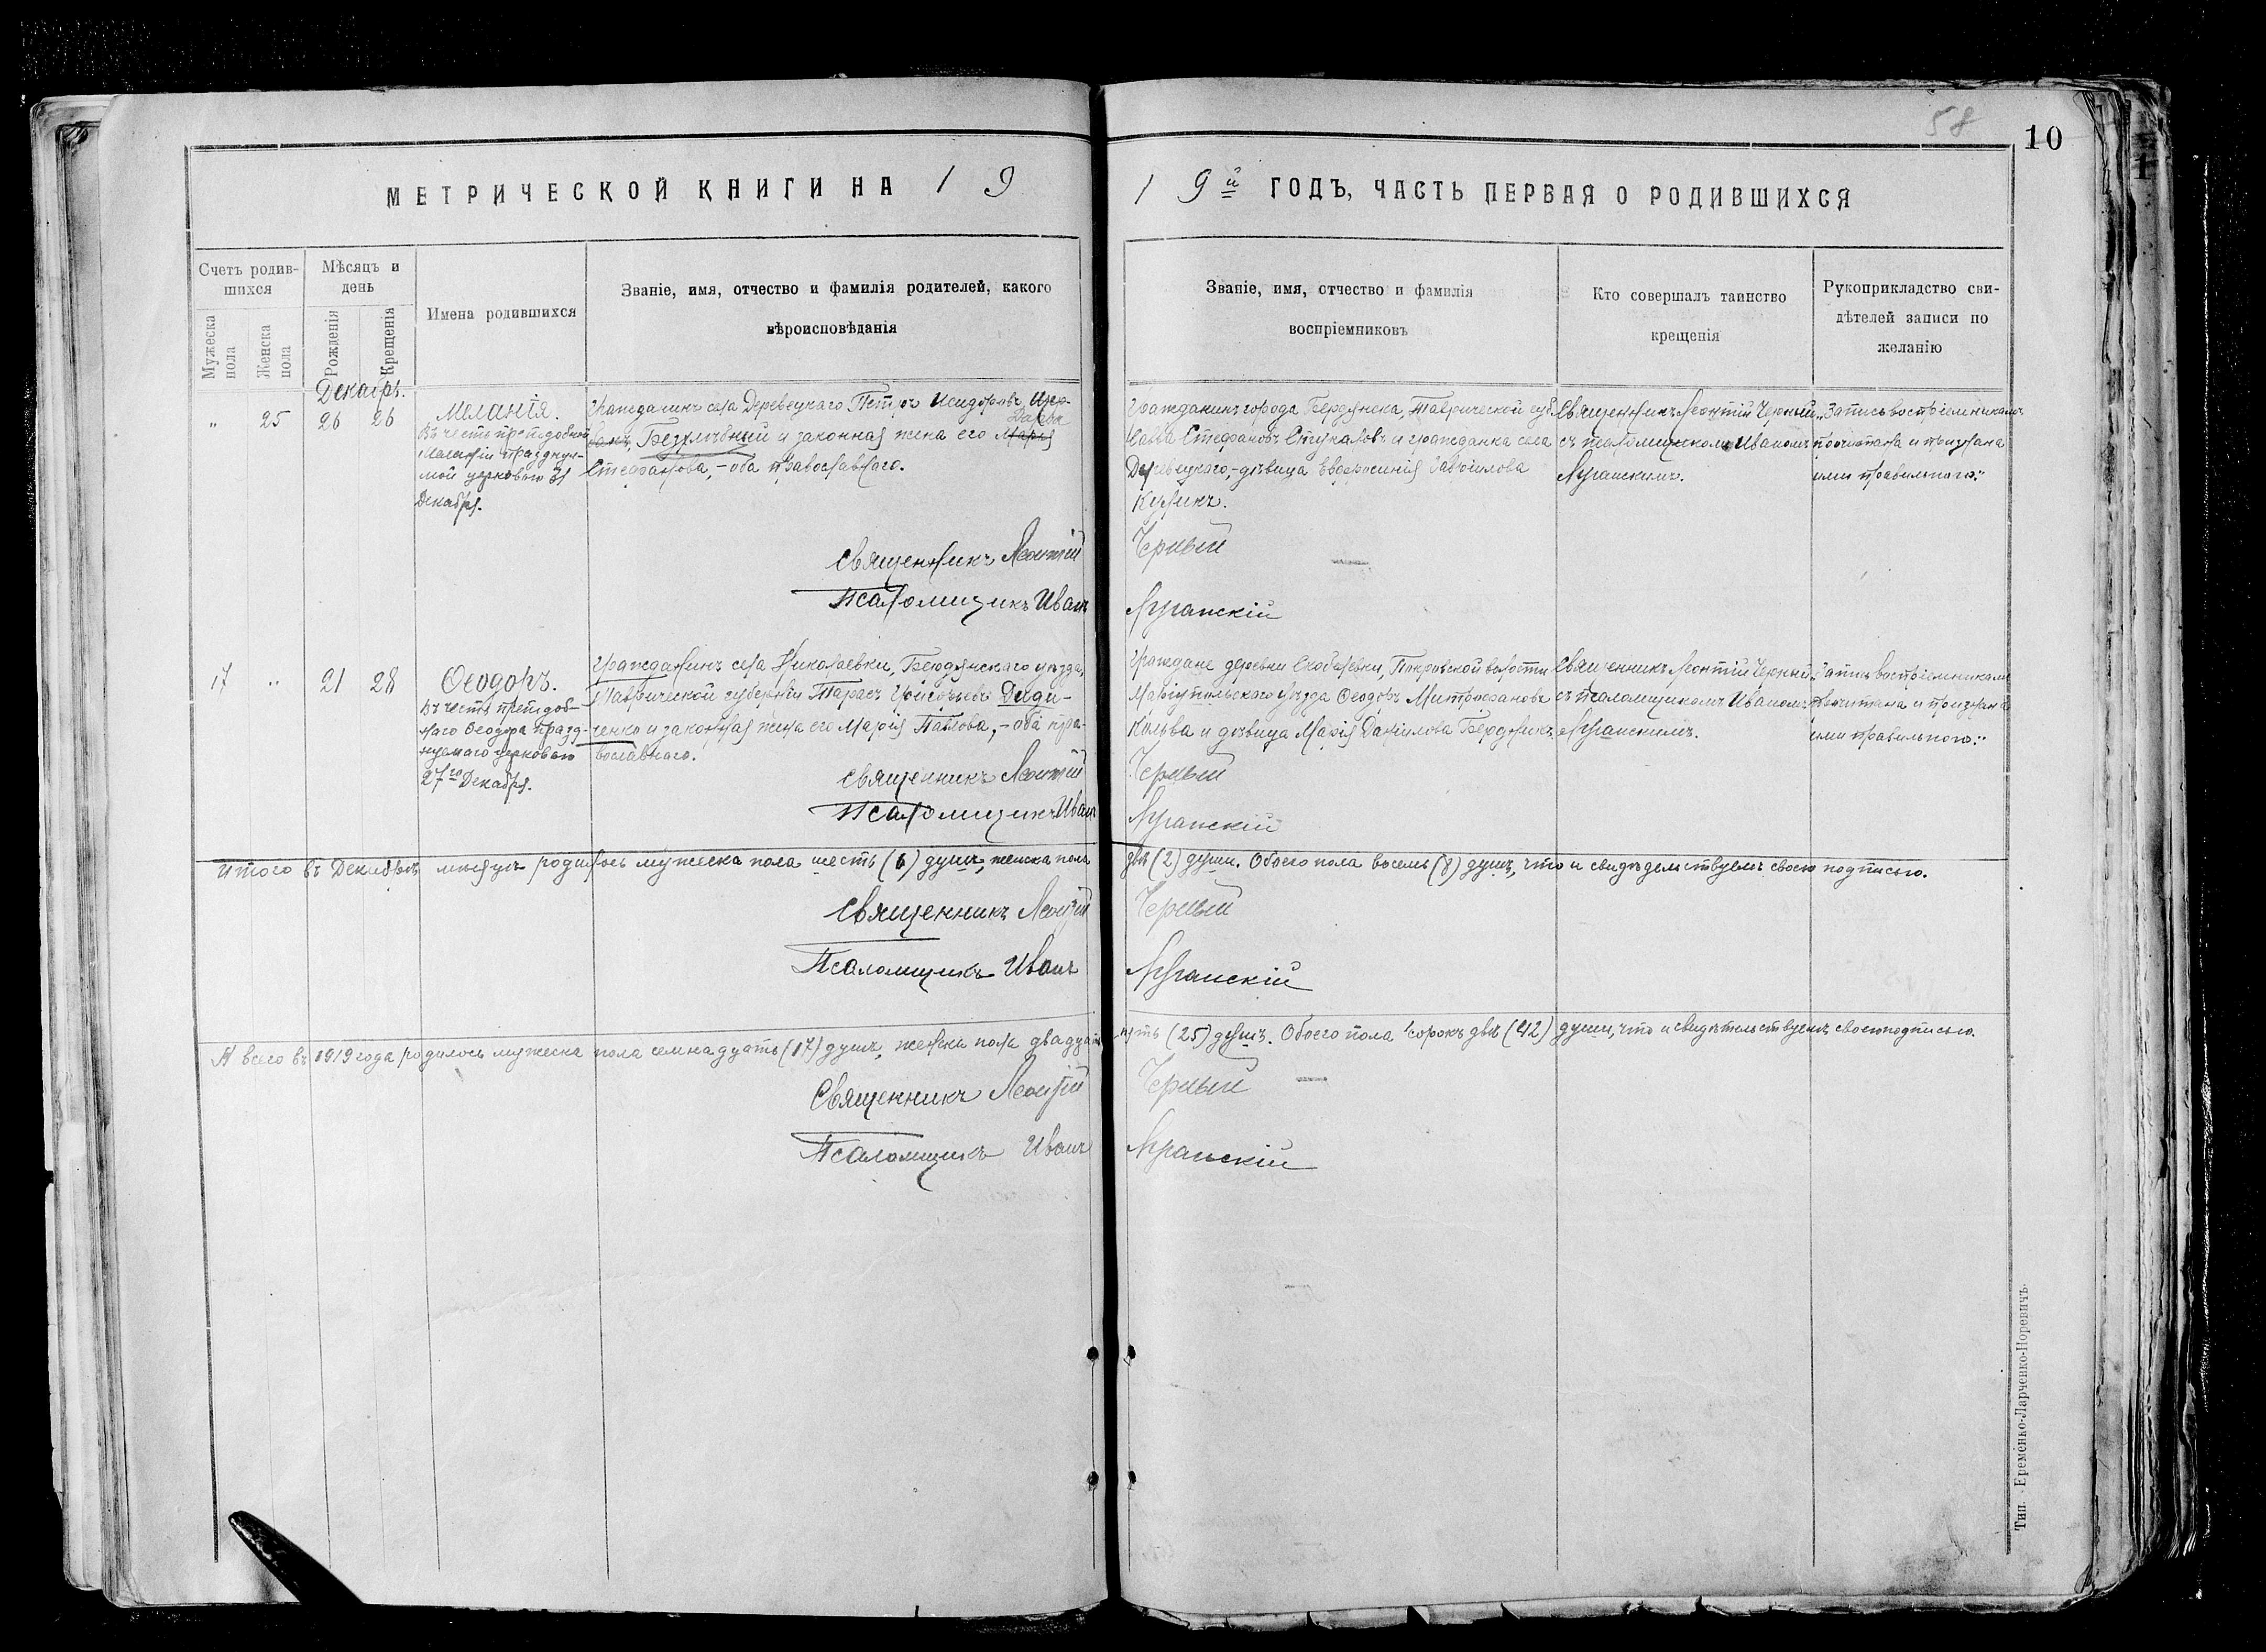 58
10
МЕТРИЧЕСКОЙ КНИГИ НА 1 9
1 9й ГОДЪ, ЧАСТЬ ПЕРВАЯ О РОДИВШИХСЯ
Счетъ родив-
шихся
Мѣсяцъ и
день
Мужеска
пола
Женска
пола
Рожденія
Крещенія
Имена родившихся
Званіе, имя, отчество и фамилія родителей, какого
вѣроисповѣданія
Званіе, имя, отчество и фамилія
воспріемниковъ
Кто совершалъ таинство
крещенія
Рукоприкладство сви-
дѣтелей записи по
желанію
Декабрь.
" 25 26 26
Меланія.
Въ честь преподобной
Меланіи празднуе-
мой церковью 31
Декабря.
Гражданинъ села Деревецкаго Петръ Исидоровъ
Безхлѣбный и законная жена его Марія
Стефанова, - оба православнаго.
Священникъ Леонтій
Псаломщикъ Иванъ
Гражданинъ города Бердянска, Таврической губ.
Савва Стефановъ Стукаловъ и гражданка села
Деревецкаго, - дѣвица Евфросинія Гавріилова
Куликъ.
Черный
Луганскій
Священникъ Леонтій Черный
съ псаломщикомъ Иваномъ
Луганскимъ.
"Запись воспріемниками
прочитана и признана
ими правильного."
17 " 21 28
Ѳеодоръ.
Въ честь преподоб-
наго Ѳеодора празд-
нуемаго церковью
27го Декабря.
Гражданинъ села Николаевки, Бердянскаго уѣзда,
Таврической губерніи Тарасъ Григорьевъ Диди-
ченко и законная жена его Марія Павлова, - оба пра-
вославнаго.
Священникъ Леонтій
Псаломщикъ Иванъ
Граждане деревни Скобелевки, Покровской волости
Маріупольскаго уѣзда Ѳеодоръ Митрофановъ
Кольва и дѣвица Марія Даніилова Бердникъ.
Черный
Луганскій
Священникъ Леонтій Черный
съ псаломщикомъ Иваномъ
Луганскимъ.
"Запись воспріемниками
прочитана и признана
ими правильного."
Итого въ Декабрѣ мѣсяцѣ родилось мужеска пола шесть (6) душъ, женска пола
двѣ (2) души. Обоего пола восемь (8) душъ, что и свидѣдельствуемъ своею подписью.
Священникъ Леонтій
Черный
Псаломщикъ Иванъ
Луганскій
А всего въ 1919 года родилось мужеска пола семнадцать (17) душъ, женска пола двадцать
пять (25) душъ. Обоего пола сорокъ двѣ (42) души, что и свидѣтельствуемъ своею подписью.
Священникъ Леонтій
Черный
Псаломщикъ Иванъ
Луганскій
Тип. Еременко-Ларченко-Норевичъ